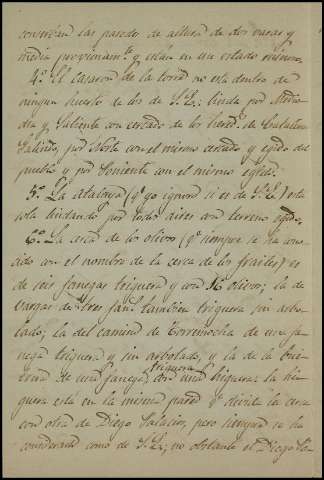 conservan las paredes de altura de dos varas y
media proximam.te y están en un estado
4.º El casaron de la torre no está dentro de
ningun huerto de los de S.E. linda por Medio
dia y Saliente con cercado de los hered.s de
Galindo, por Norte con el mismo cercado y egido del
pueblo y por Poniente con el mismo egido.
5.º La atalaya (q.e yo ignoro si es de S.E.) está
sola lindando por todos aires con terreno
6.º La cerca de los olivos (q.e siempre se ha cono-
cido con el nombre de la cerca de los frailes) es
de seis fanegas triguera y con 16 olivos; la de
Vargas de tres fan.s tambien triguera sin arbo-
lado; la del camino de Torremocha de una fa-
nega triguera y sin arbolado, y la de la
de una fanega triguera con una higuera; la hi-
guera está en la misma pared q.e divide la cerca
con otra de Diego Palacios, pero siempre se ha
considerado como de S.E.; no obstante el Diego Pa-